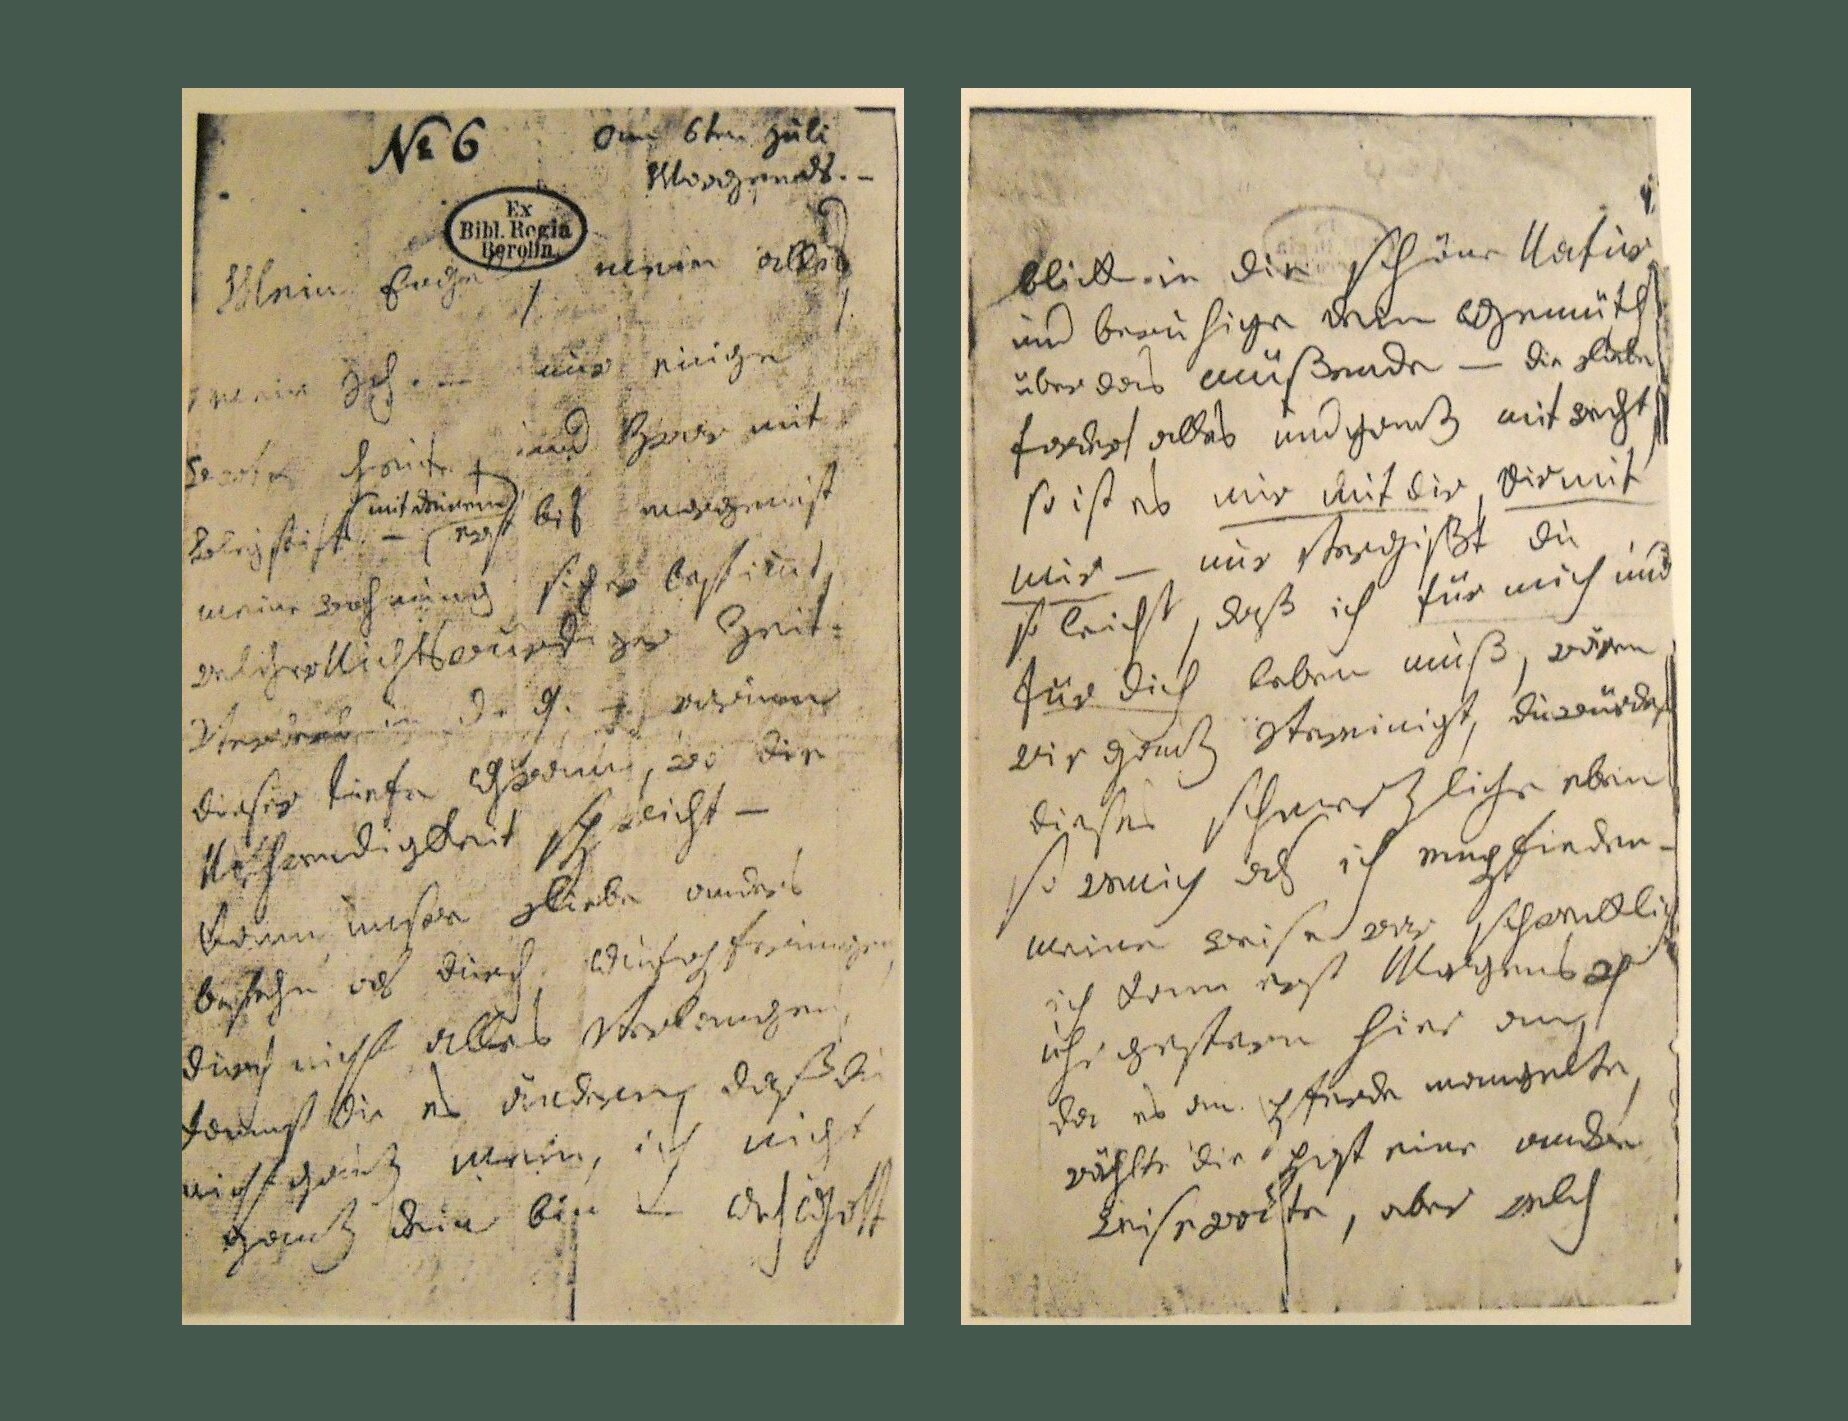 № 6
am 6ten Juli
Morgends. –
Ex
Bibl. Regia
Berolin.
Mein Engel, mein alles,
mein Ich. – nur einige
Worte heute, und zwar mit
Bleystift – (mit deinem
bis morgen ist
meine wohnung sicher bestimmt,
welcher Nichtswürdiger Zeit-
Verderb in d. g. – warum
dieser tiefe Gram, wo die
Nothwendigkeit spricht –
Kann unsre Liebe anders
bestehn als durch Aufopferungen,
durch nicht alles Verlangen,
kannst du es ändern, daß du
nicht ganz mein, ich nicht
ganz dein bin – Ach Gott
blick in die schöne Natur
und beruhige dein Gemüth
über das müßende – die Liebe
fordert alles und ganz mit recht,
so ist es mir mit dir, dir mit
mir – nur vergißt du
so leicht, daß ich für mich und
für dich leben muß, wären
wir ganz vereinigt, du würdest
dieses schmerzliche eben
so wenig als ich empfinden –
meine Reise war schrecklich
ich kam erst Morgens 4
uhr gestern hier an,
da es an Pferde mangelte,
wählte die Post eine andre
Reiseroute, aber welch